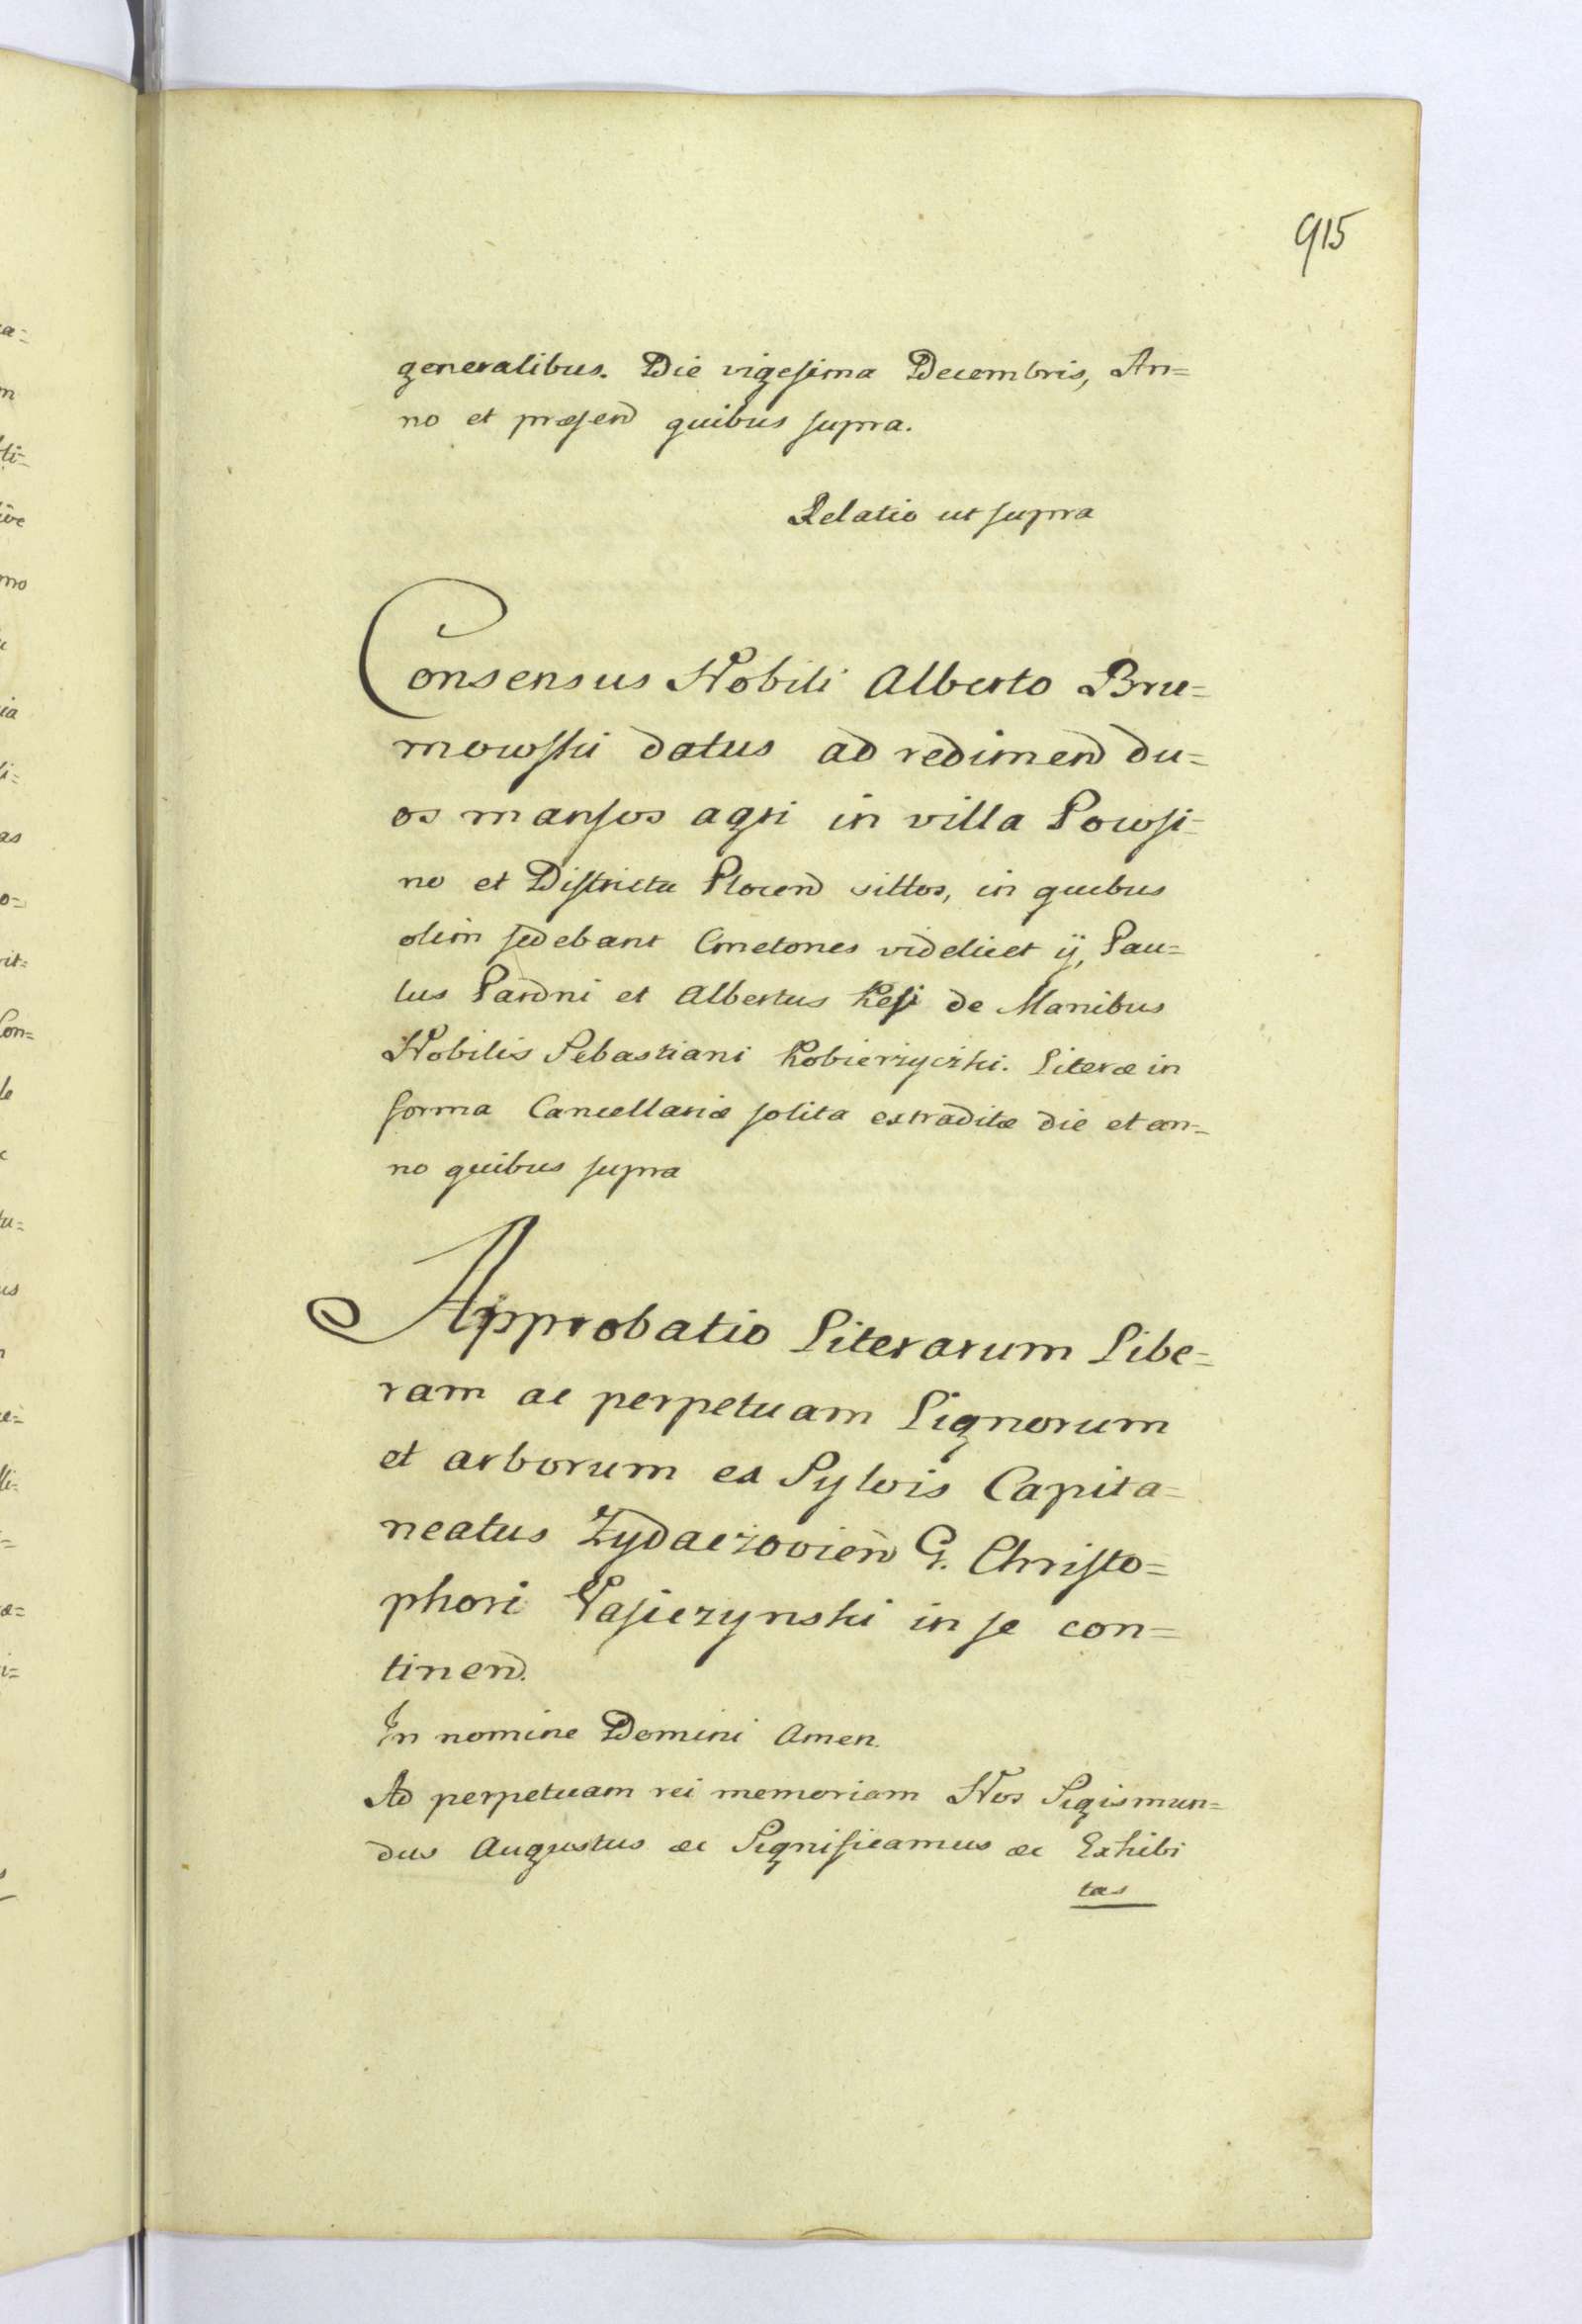 915
generalibus. Die vigesima Decembris, An=
no et præsend quibus supra.
Relatio ut supra
Consensus Nobili Alberto Bru=
mowski datus ad redimend du=
os mansos agri in villa Powsi=
no et Districtu Plocend sittos, in quibus
olim sedebant Cmetones videlicet ij, Pau=
lus Pardni et Albertus Kesi de Manibus
Nobilis Sebastiani Kobierzyczki. Literæ in
forma Cancellariæ solita extraditæ die et an=
no quibus supra
Approbatio Literarum Libe=
ram ac perpetuam Lignorum
et arborum ex Sylvis Capita=
neatus Zydaczovień G. Christo=
phori Pasiezynski in se con=
tinend.
In nomine Domini Amen.
Ad perpetuam rei memoriam Nos Sigismun=
dus Augustus &c Significamus &c Exhibi
tas